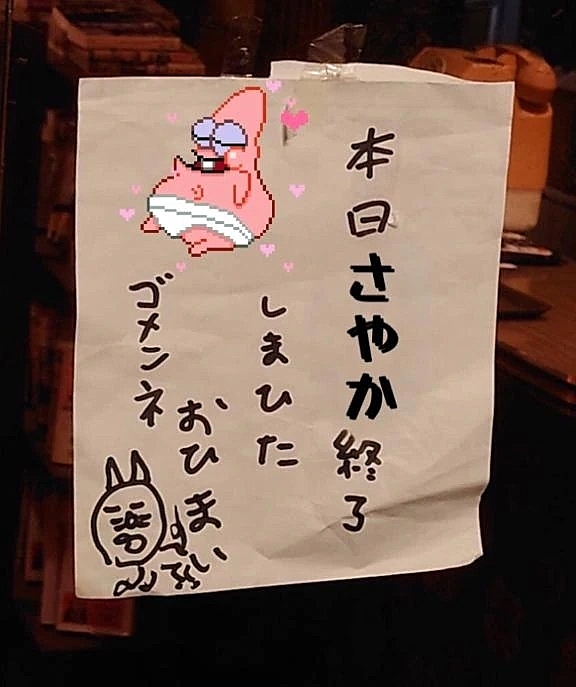 本日さやか終了
しまひた
ゴメンネ
おひまい